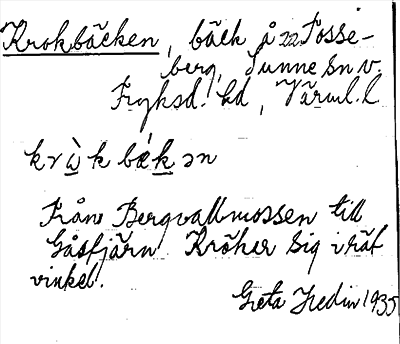 Krokbäcken, bäck å 22 Tosse-
berg, Sunne Sn v.
Fryksd. hd, Värml. l
kr ù k bæ̀k ən
Från Bergvallmossen till
Gåsfjärn. Kröker Sig i rät
vinkel.
Greta Hedin 1935